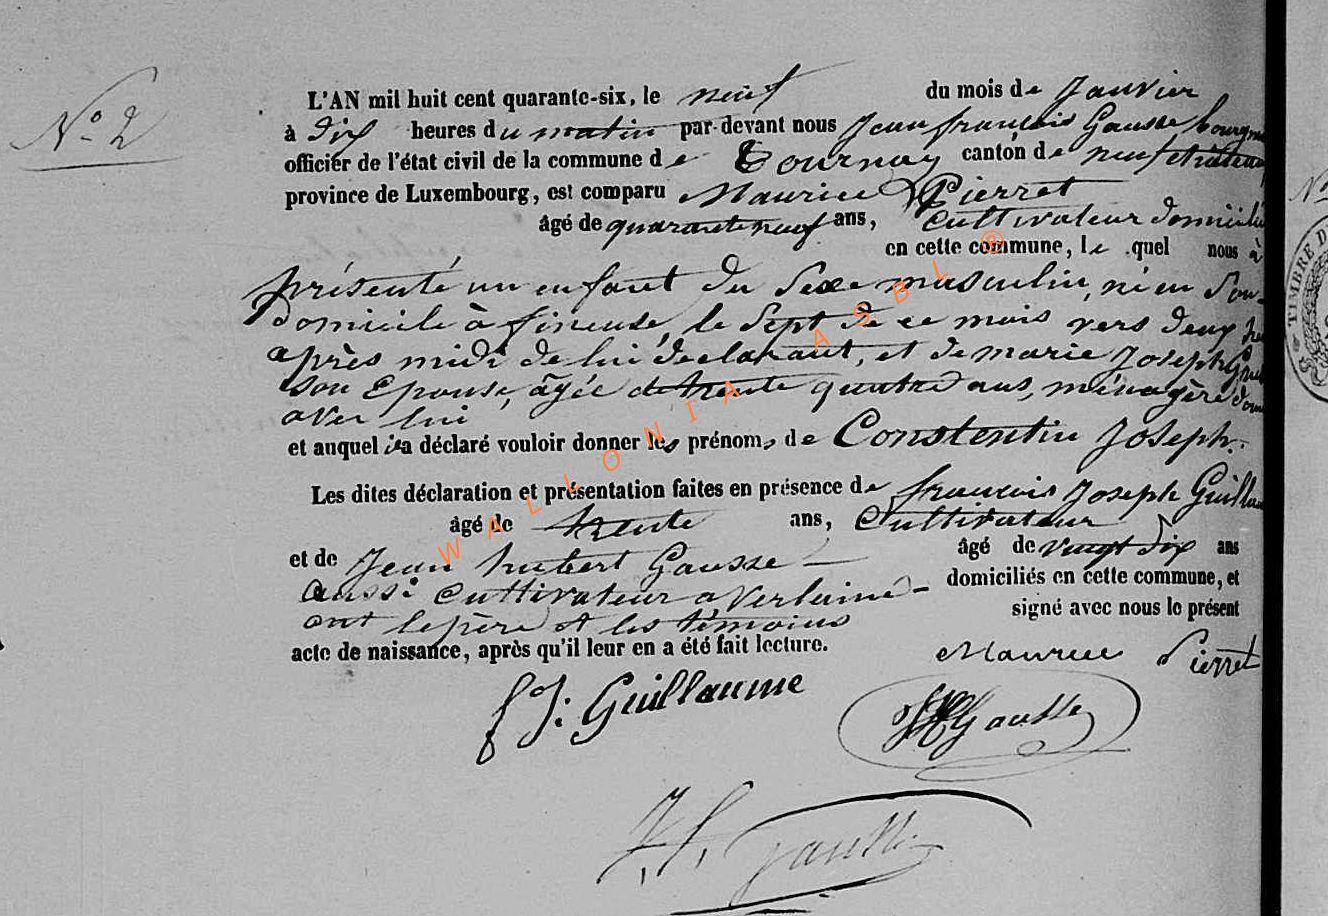 N° 2
L'AN mil huit cent quarante-six, le neuf du mois de Janvier
à dix heures du matin par-devant nous Jean françois Gausse bourgm
officier de l'état civil de la commune de Tournay canton de neufchateau
province de Luxembourg, est comparu Maurice Pierret
âgé de quarante neuf ans, Cultivateur domicilié
en cette commune, lequel nous à
présenté un enfant du Sexe masculin, né en Son
domicile à fineuse, le Sept de ce mois vers deux he
après midi de lui déclarant, et de marie Joseph
Son Epouse, âgée de trente quatre ans, ménagère dom
avec lui
et auquel il a déclaré vouloir donner les prénoms de Constentin Joseph.
Les dites déclaration et présentation faites en présence de francois Joseph Guillau
âgé de trente ans, Cultivateur
et de Jean hubert Gausse âgé de vingt dix ans
aussi Cultivateur a Verlaine domiciliés en cette commune, et
ont le père et les témoins signé avec nous le présent
acte de naissance, après qu'il leur en a été fait lecture.
Maurice Pierret
f J: Guillaume
JHGausse
J. f. Gausse
WALLONIA ASBL ®
TIMBRE D